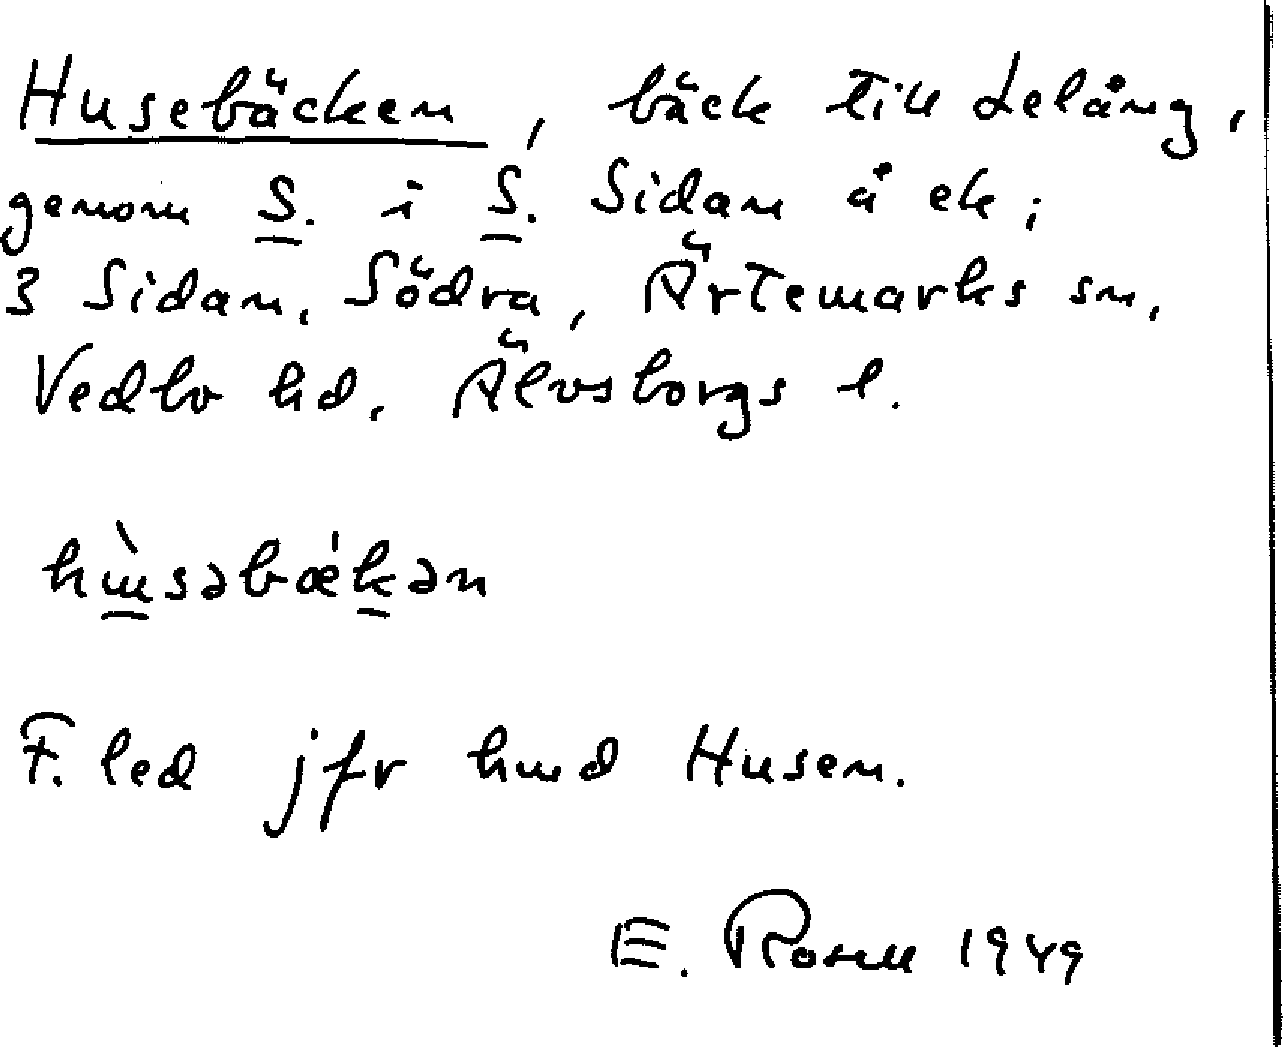 Husebäcken, bäck till Lelång,
genom S. i S. Sidan å ek;
3 Sidan, Södra, Ärtemarks sn,
Vedbo hd, Älvsborgs l.
hùsəbǽkən
F. led jfr hmd Husen.
E. Rosell 1949